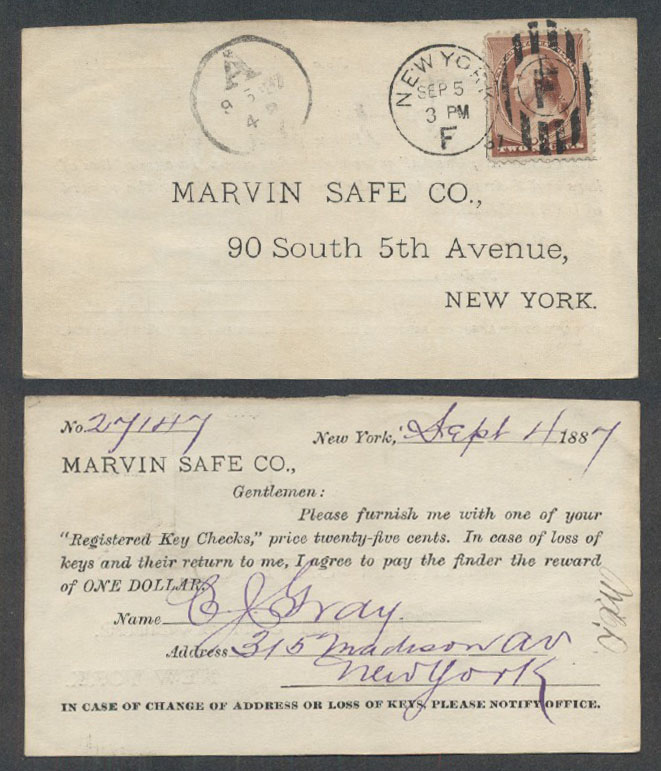 NEW YORK
SEP 5
3 PM
F
87
F
TWO CENTS
A
MARVIN SAFE CO.,
90 South 5th Avenue,
NEW YORK.
No. 27147
New York, Sept 4 1887
MARVIN SAFE CO.,
Gentlemen:
Please furnish me with one of your
"Registered Key Checks," price twenty-five cents. In case of loss of
keys and their return to me, I agree to pay the finder the reward
of ONE DOLLAR.
Name C J Gray.
Address 315 Madison Av
New York
IN CASE OF CHANGE OF ADDRESS OR LOSS OF KEYS, PLEASE NOTIFY OFFICE.